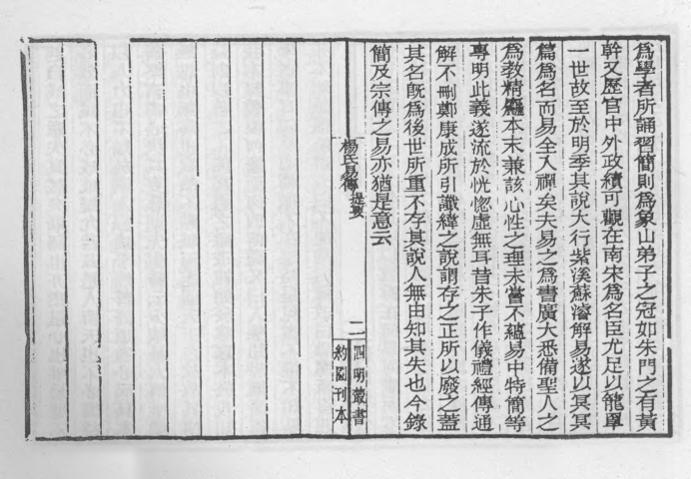 爲學者所誦習簡則爲象山弟子之冠如朱門之有黃
幹又歷官中外政績可觀在南宋爲名臣尤足以籠罩
一世故至於明季其說大行紫溪蘇濬解易遂以冥冥
篇爲名而易全入禪矣夫易之爲書廣大悉備聖人之
爲教精粗本末兼該心性之理未嘗不蘊易中特簡等
專明此義遂流於恍惚虛無耳昔朱子作儀禮經傳通
解不刪鄭康成所引讖緯之說謂存之正所以廢之蓋
其名旣爲後世所重不存其說人無由知其失也今錄
簡及宗傳之易亦猶是意云
楊氏易傳 提要
二
四明叢書
約園刊本